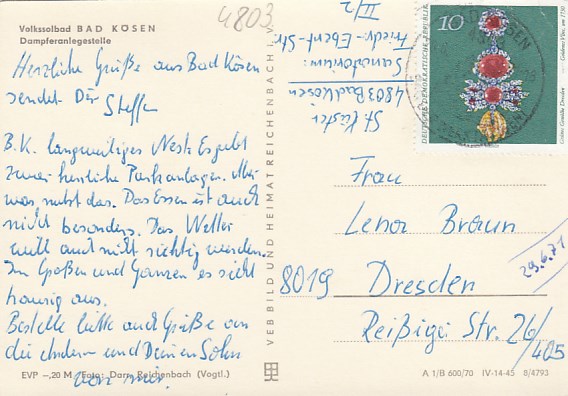 4803
Volkssolbad BAD KÖSEN
Dampferanlegestelle
Herzliche Grüße aus Bad Kösen
sendet Dir Steffen
B.K. langweiliges Nest. Es gibt
zwei herrliche Parkanlagen. Aber
was nutzt das. Das Essen ist auch
nicht besonders. Das Wetter
will auch nicht richtig werden.
Im Großen und Ganzen es sieht
traurig aus.
Bestelle bitte auch Grüße an
die andern und Deinen Sohn
von mir.
EVP -,20 M Foto: Darr, Reichenbach (Vogtl.)
VEB BILD UND HEIMAT REICHENBACH I. V.
St. Küster
4803 Bad Kösen
Sanatorium:
Friedr.-Ebert-Str.
II/2
10
DEUTSCHE DEMOKRATISCHE REPUBLIK
Grünes Gewölbe Dresden
Frau
Lenor Braun
8019 Dresden
29.6.71
Reißiger Str. 26/
405
A 1/B 600/70 IV-14-45 8/4793